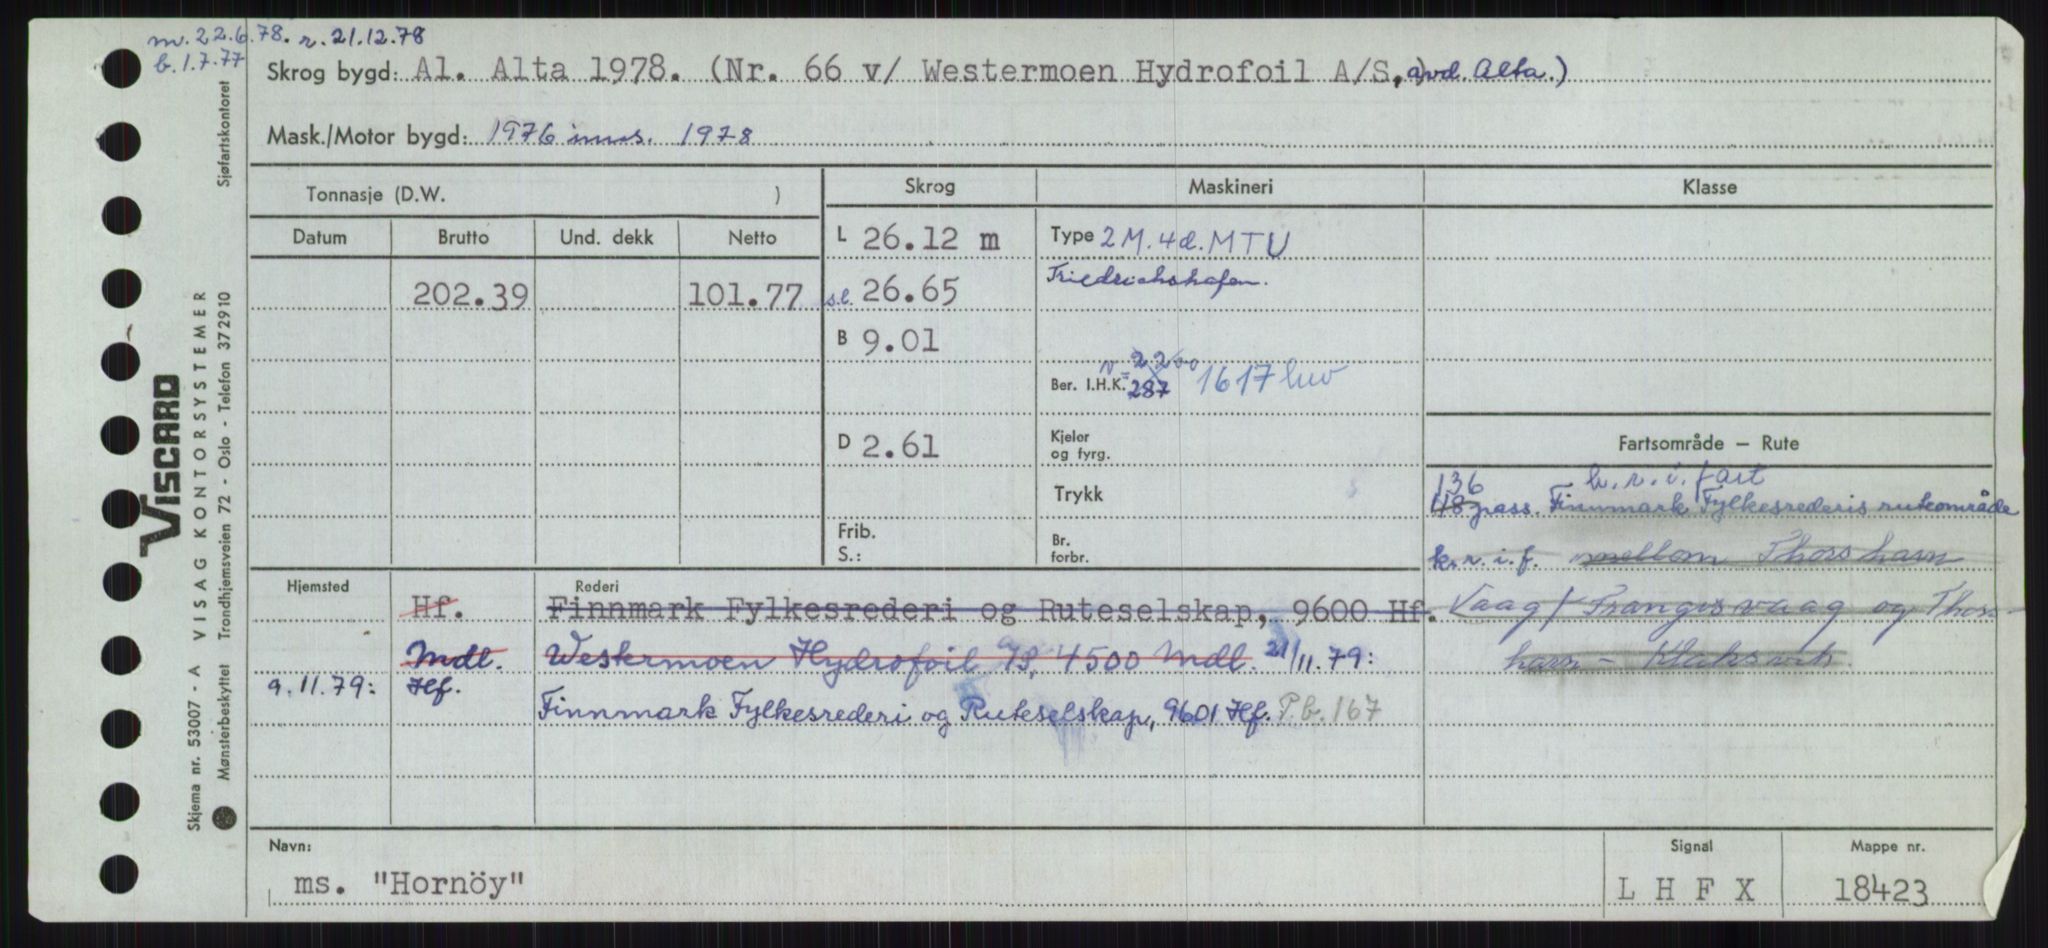 m. 22.6.78. r. 21.12.78
b. 1.7.77
Skrog bygd: Al. Alta 1978. (Nr. 66 v/ Westermoen Hydrofoil A/S, avd. Alta.)
Mask./Motor bygd: 1976 inns. 1978
Tonnasje (D.W. )
Skrog Maskineri Klasse
Datum Brutto Und. dekk Netto
L 26.12 m
Type 2 M. 4d. MTU
Friedrichshafen.
202.39 101.77
s.l. 26.65
B 9.01
Ber. I.H.K. n = 2200 287 1617 hw
D 2.61
Kjeler og fyrg.
Trykk
Frib.
S.:
Br. forbr.
Fartsområde – Rute
136 k.r.i. fart
48 pass. Finnmark Fylkesrederis ruteområde
k.r.i.f. mellom Thorshavn
Vaag / Trangisvaag og Thors-
havn – Klaksvik.
Hjemsted Rederi
Hf. Finnmark Fylkesrederi og Ruteselskap, 9600 Hf.
Mdl. Westermoen Hydrofoil A/S, 4500 Mdl. 21/11.79:
9.11.79: Hf. Finnmark Fylkesrederi og Ruteselskap, 9601 Hf. P.b. 167
Navn: ms. "Hornöy"
Signal L H F X
Mappe nr. 18423
Sjøfartskontoret
VISCARD
Skjema nr. 53007 - A VISAG KONTORSYSTEMER
Mønsterbeskyttet Trondhjemsveien 72 - Oslo - Telefon 372910